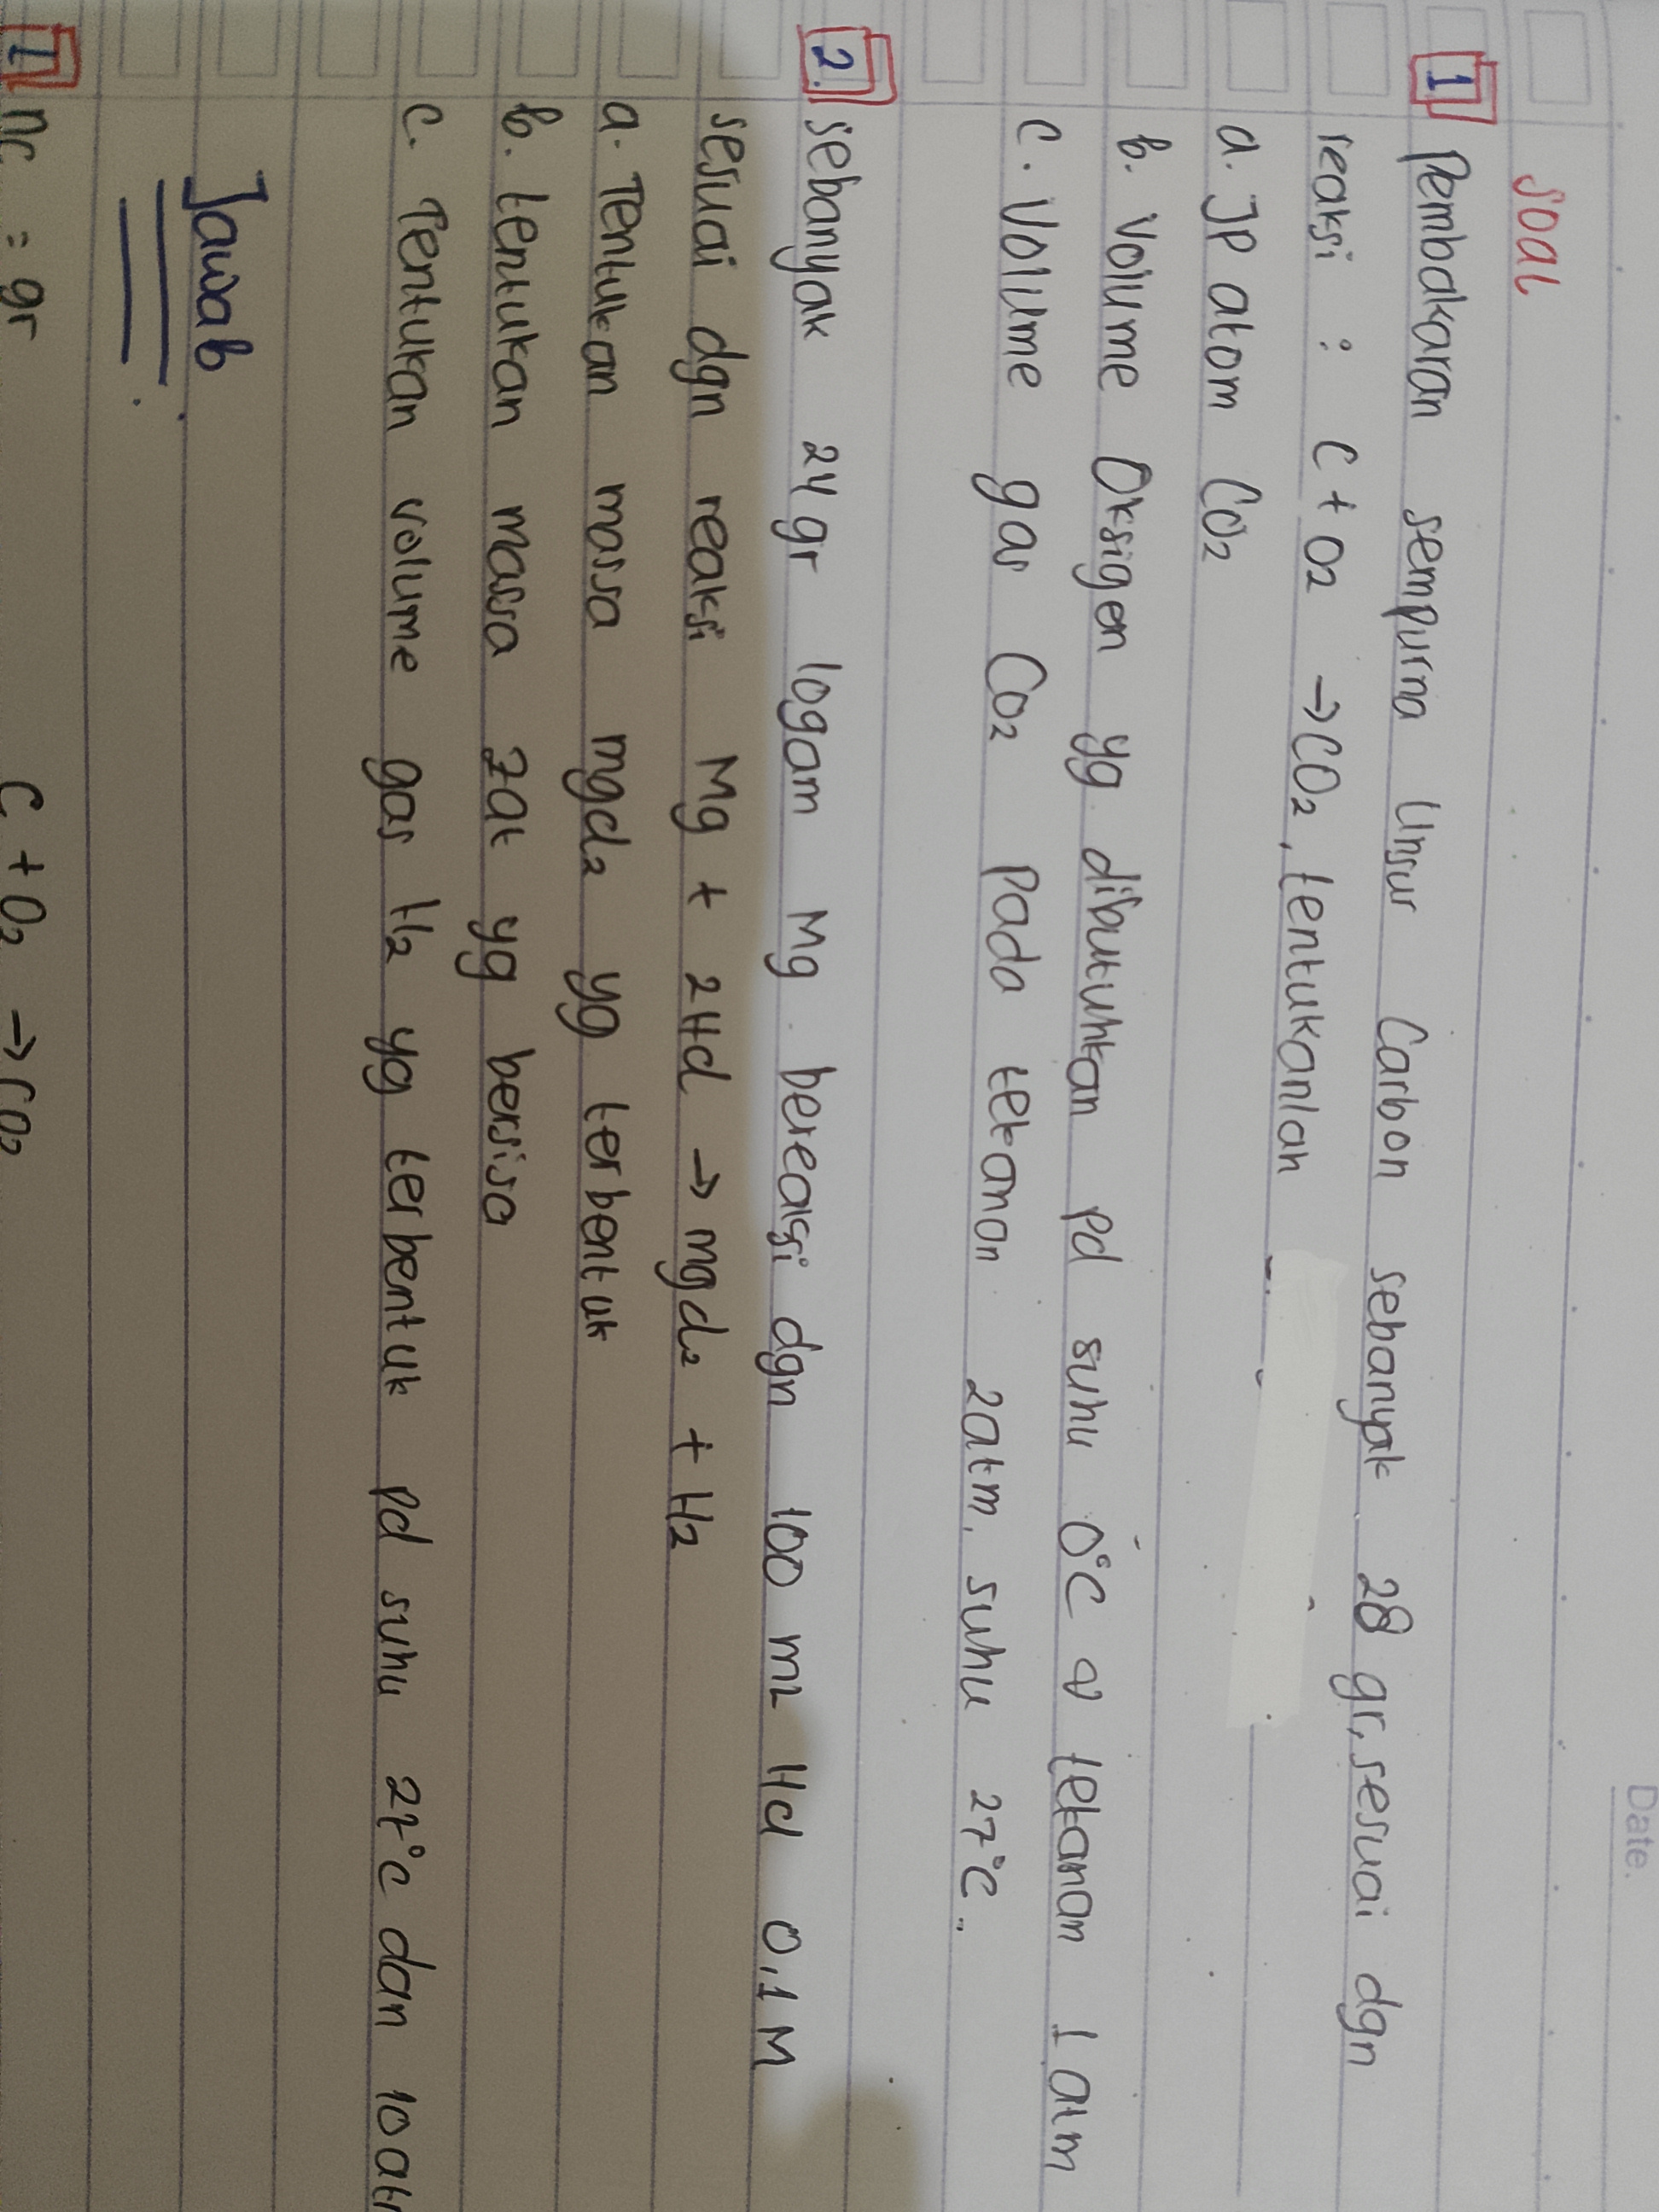 Date.
SOAL
1 Pembakaran sempurna Unsur Carbon sebanyak 28 gr, sesuai dgn
reaksi : C + O2 → CO2, tentukanlah
a. JP atom CO2
b. Volume Oksigen yg dibutuhkan pd suhu 0°C & tekanan 1 atm
c. Volume gas CO2 pada tekanan 2atm, suhu 27°C..
2. sebanyak 24gr logam Mg bereaksi dgn 100 mL HCl 0,1 M
sesuai dgn reaksi Mg + 2HCl → MgCl2 + H2
a. Tentukan massa MgCl2 yg terbentuk
b. tentukan massa zat yg bersisa
c. Tentukan volume gas H2 yg terbentuk pd suhu 27°C dan 10 at
Jawab
1 nC = gr C + O2 → CO2